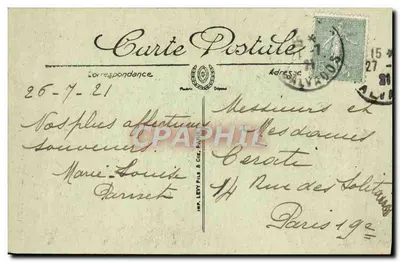 Carte Postale
Correspondance
Adresse
26-7-21
Nos plus affectueux
souvenirs
Marie-Louise
Messieurs et
Mesdames
Cerati
14 Rue des Solitaires
Paris 19e
IMP. LEVY FILS & CIE, PARIS
CALVADOS
15 *
27 -
21
cartes